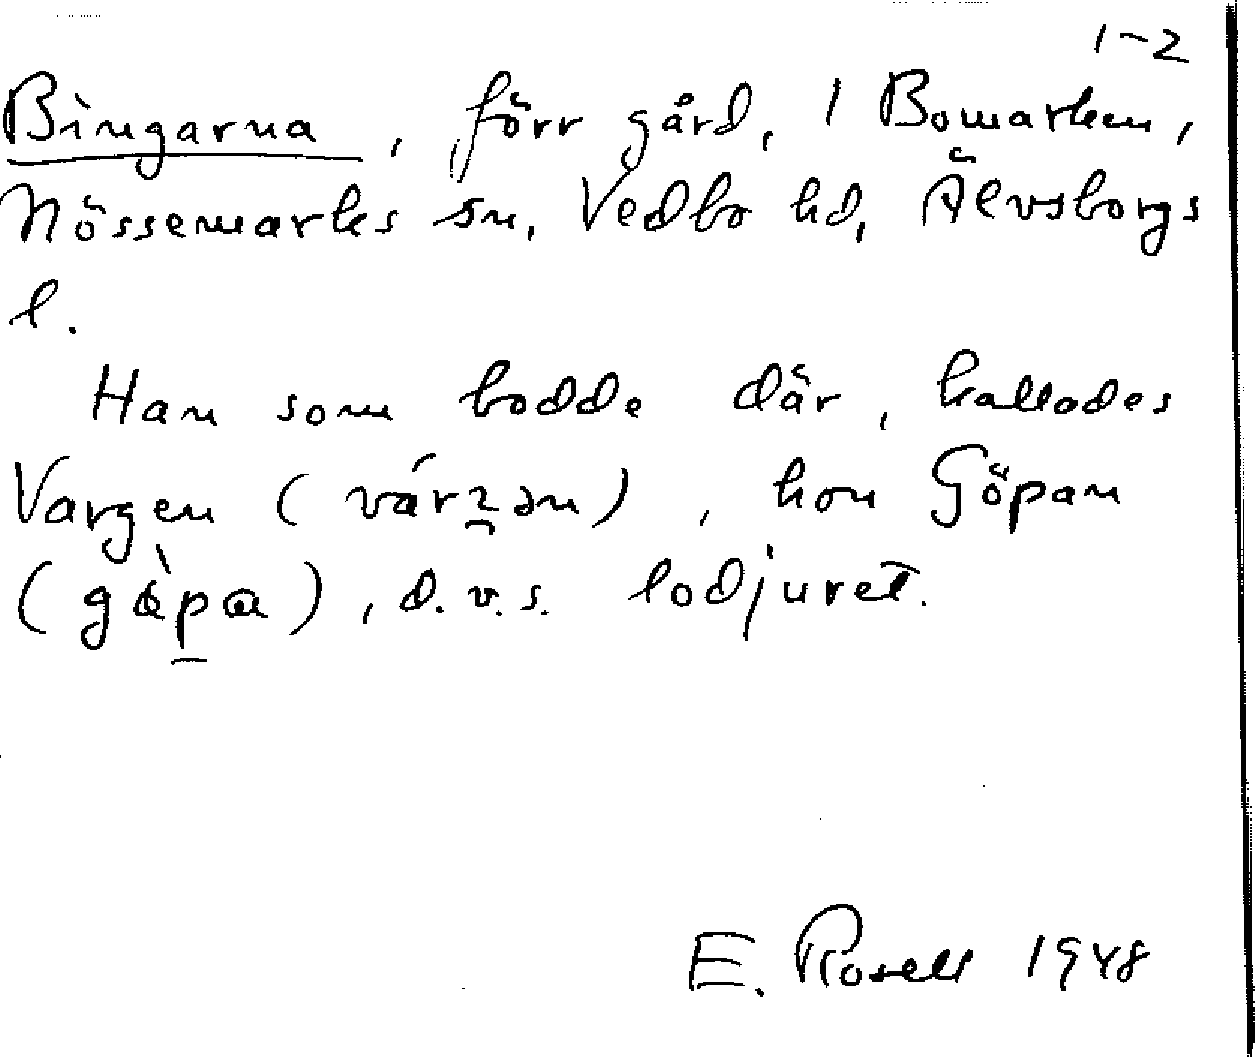 1-2
Bingarna, förr gård, 1 Bomarken,
Nössemarks sn, Vedbo hd, Älvsborgs
l.
Han som bodde där, kallades
Vargen (várzən), hon Göpan
(gɵ̀pa), d.v.s. lodjuret.
E. Rosell 1948